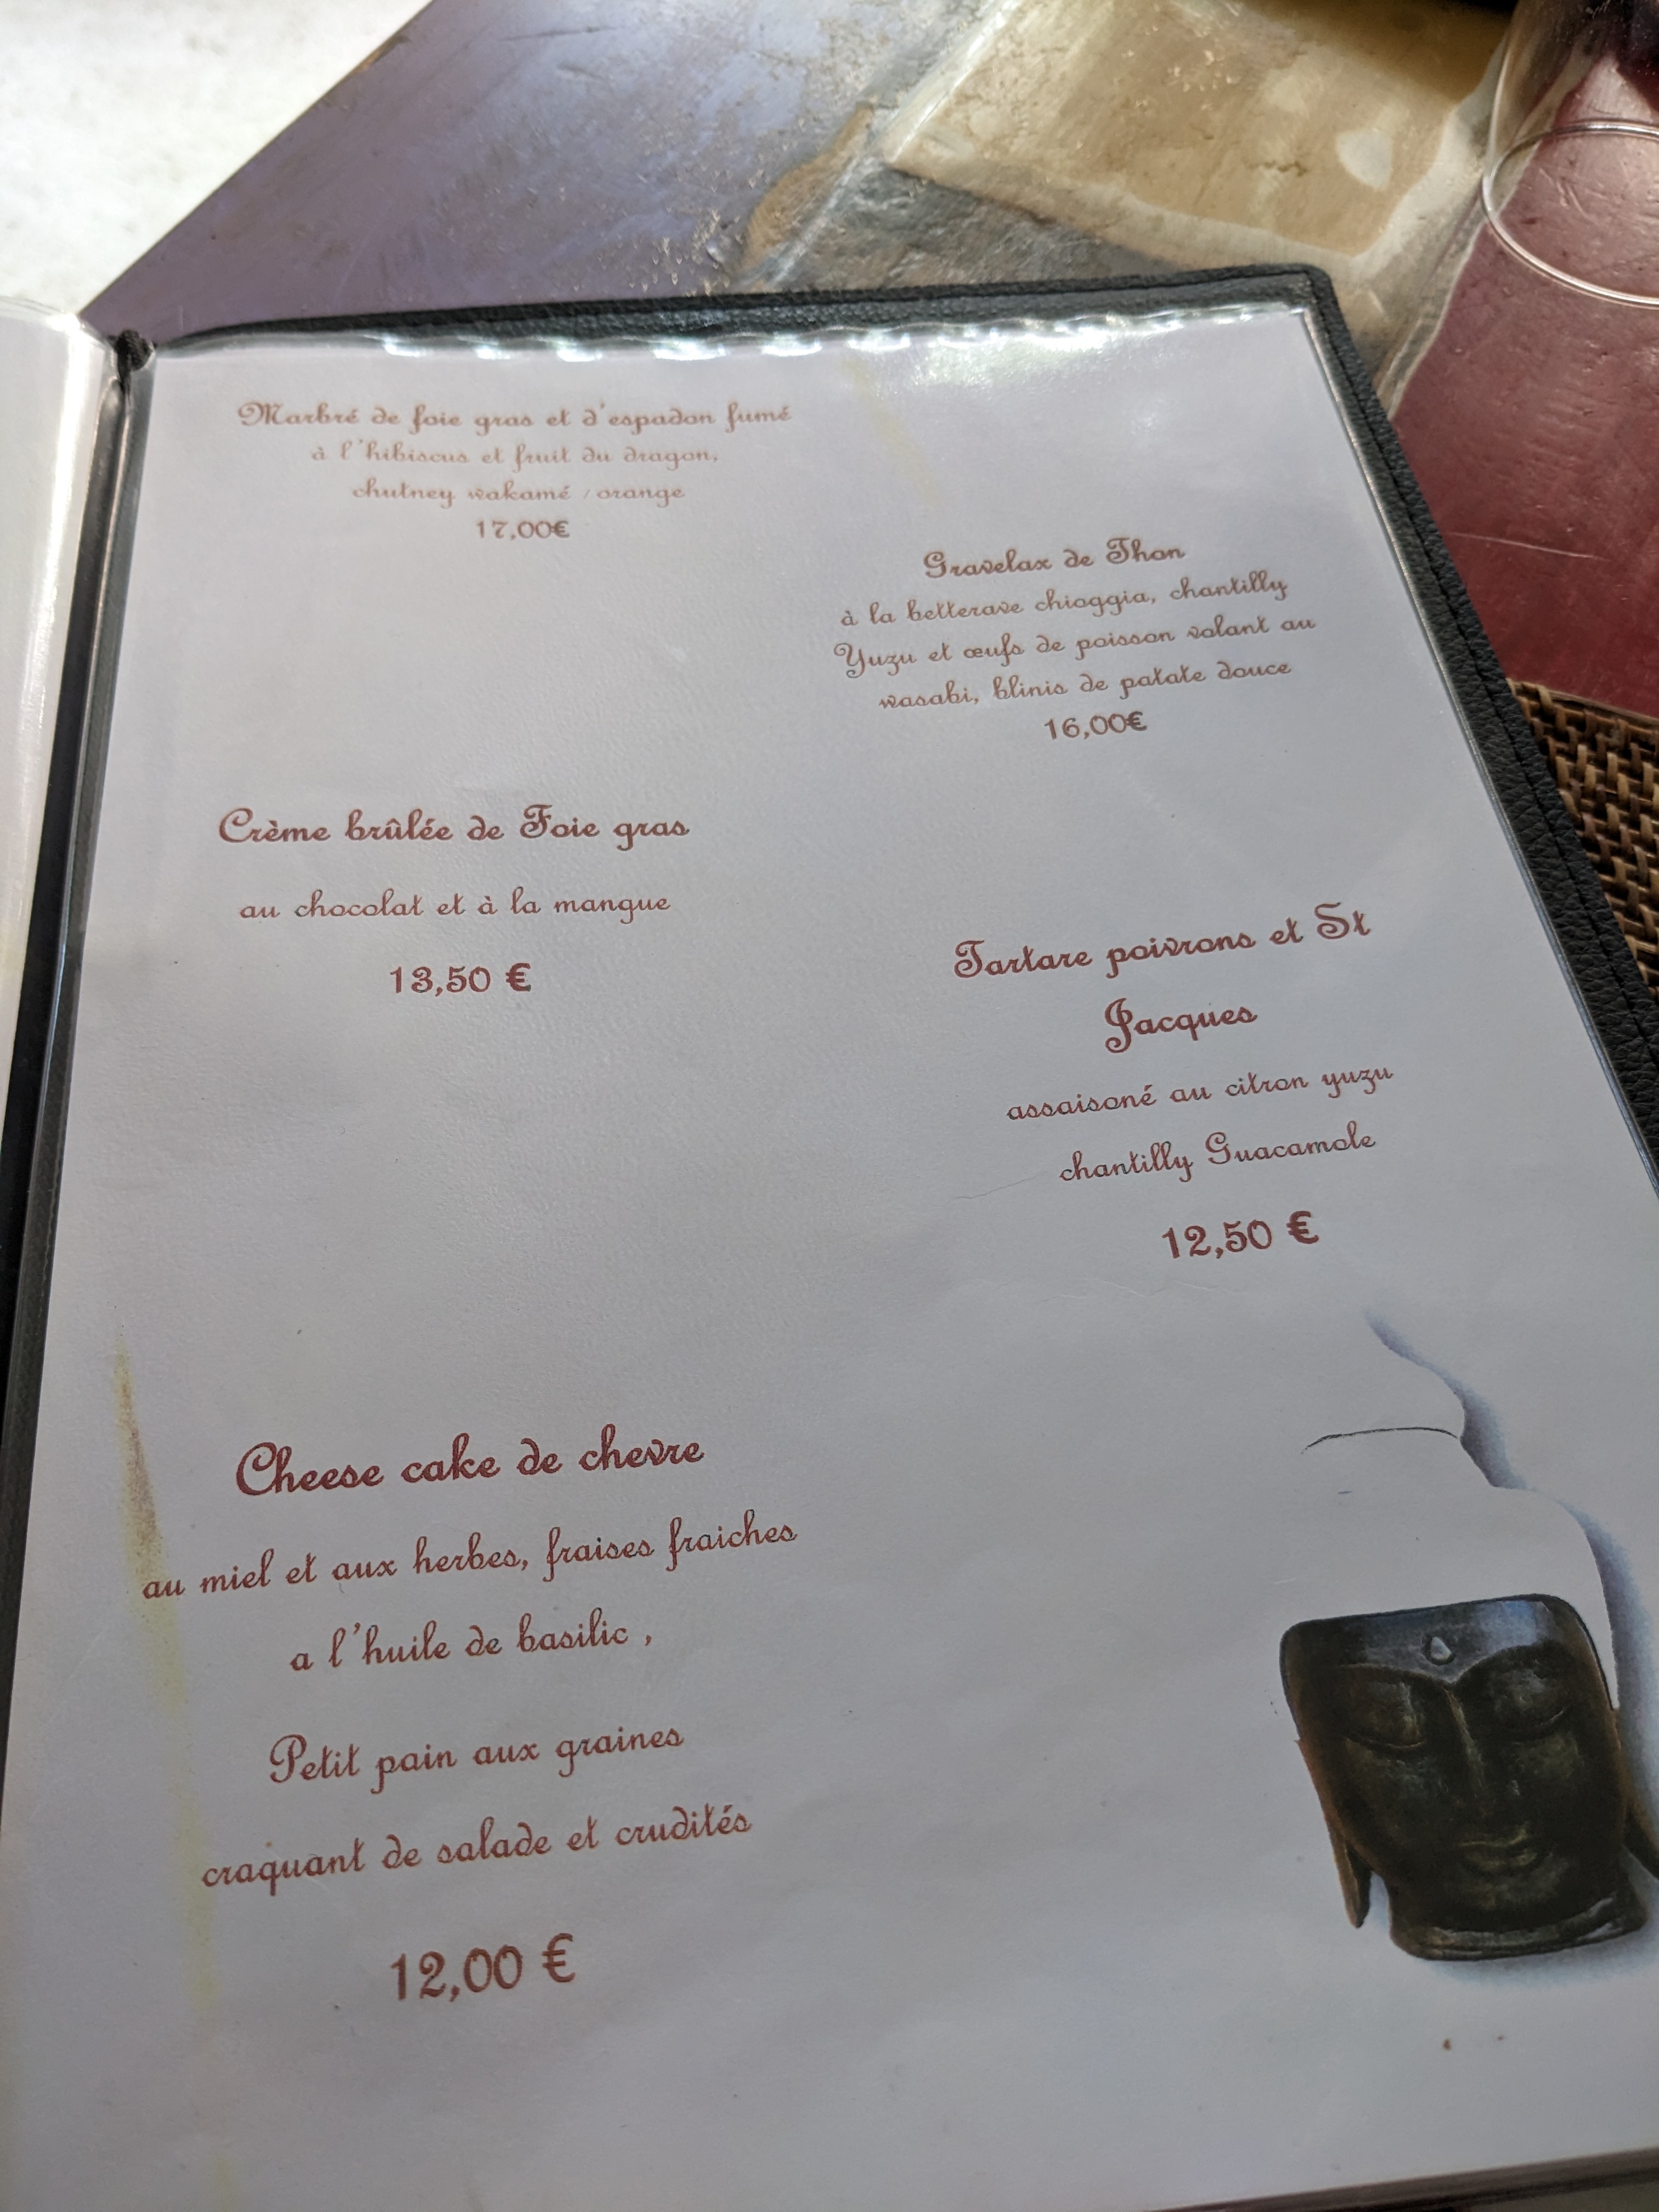 Marbré de foie gras et d'espadon fumé
à l'hibiscus et fruit du dragon,
chutney wakamé / orange
17,00€
Gravelax de Thon
à la betterave chioggia, chantilly
Yuzu et œufs de poisson volant au
wasabi, blinis de patate douce
16,00€
Crème brûlée de Foie gras
au chocolat et à la mangue
13,50 €
Tartare poivrons et St
Jacques
assaisoné au citron yuzu
chantilly Guacamole
12,50 €
Cheese cake de chevre
au miel et aux herbes, fraises fraiches
a l'huile de basilic ,
Petit pain aux graines
craquant de salade et crudités
12,00 €